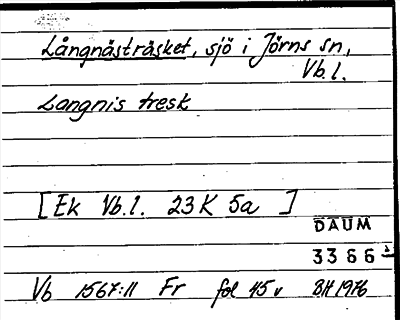 Långnästräsket, sjö i Jörns sn,
Vb. l.
Langnis tresk
[Ek Vb. l. 23K 5a ]
DAUM
3366
Vb 1567:11 Fr fol 45v BH 1976